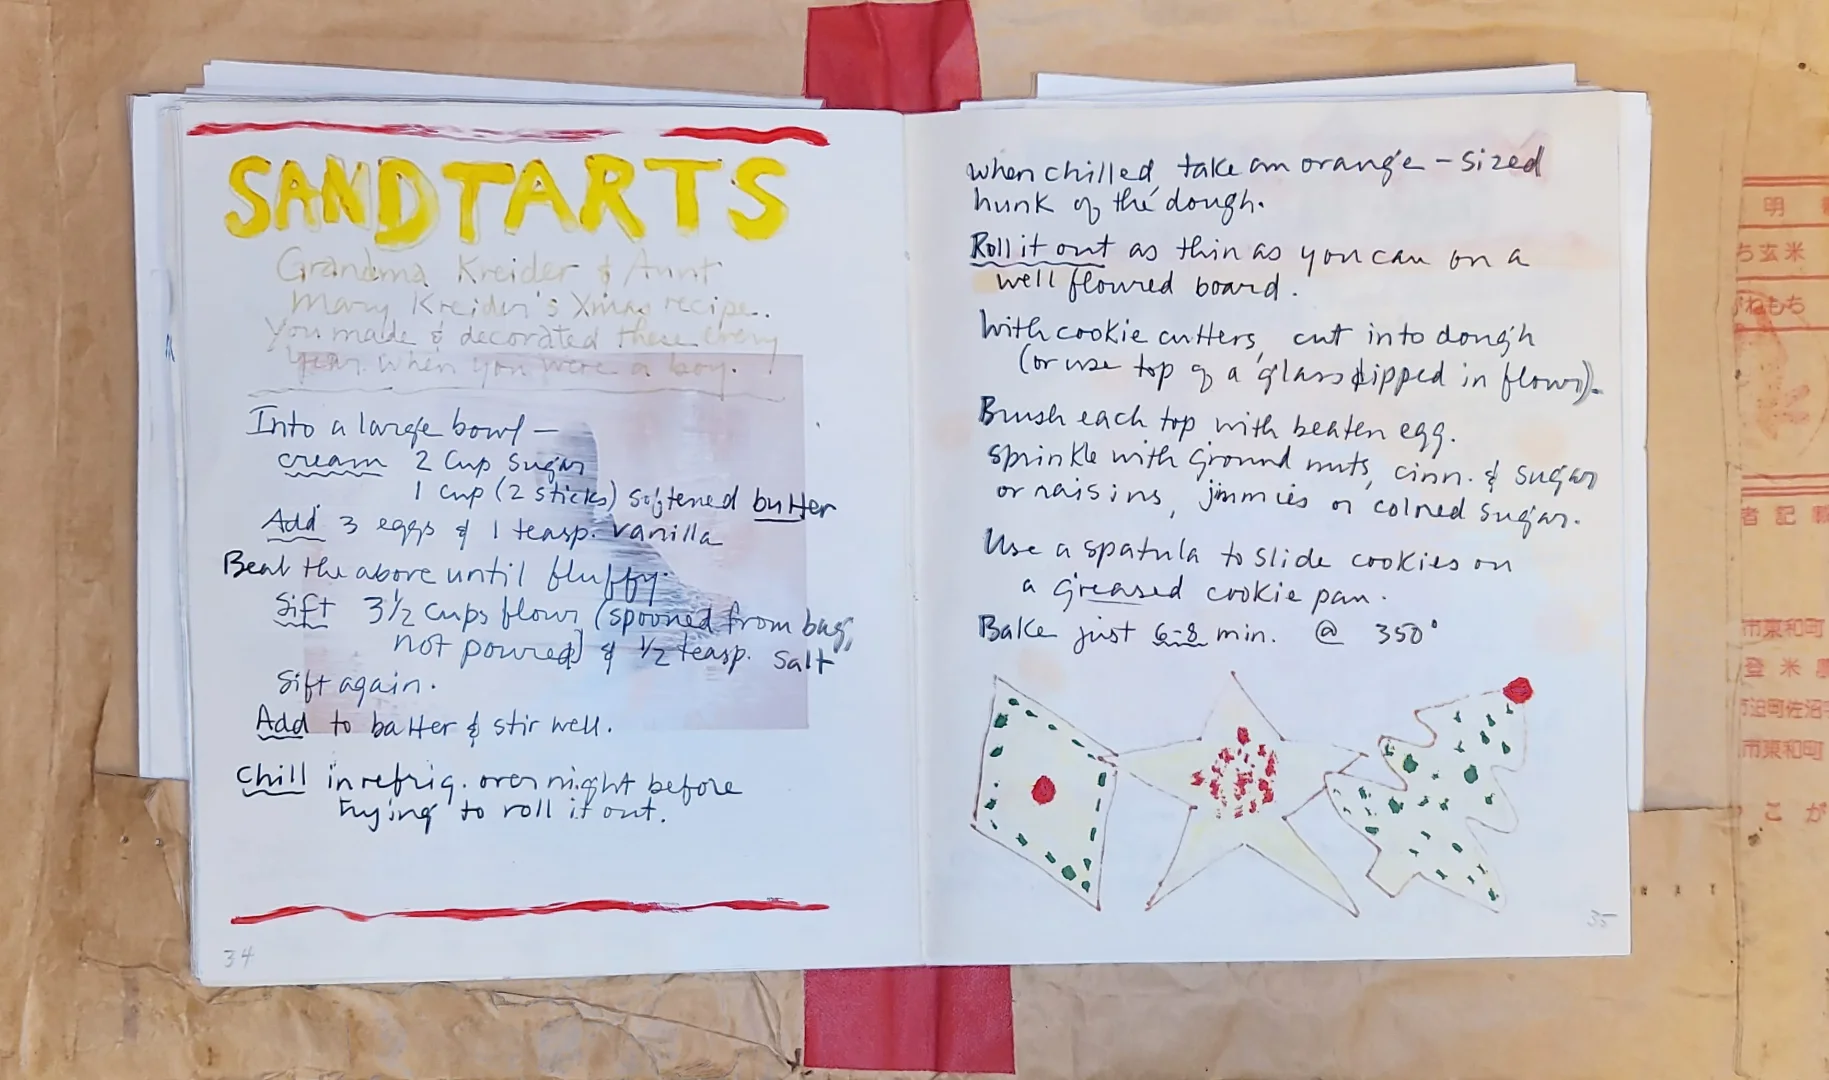 SANDTARTS
Grandma Kreider & Aunt
Mary Kreider's Xmas recipe.
You made & decorated these every
year when you were a boy.
Into a large bowl —
cream 2 cup sugar
1 cup (2 sticks) softened butter
Add 3 eggs & 1 teasp. vanilla
Beat the above until fluffy.
Sift 3½ cups flour (spooned from bag,
not poured) & ½ teasp. salt
Sift again.
Add to batter & stir well.
Chill in refrig. overnight before
trying to roll it out.
34
When chilled, take an orange-sized
hunk of the dough.
Roll it out as thin as you can on a
well floured board.
With cookie cutters, cut into dough
(or use top of a glass dipped in flour).
Brush each top with beaten egg.
Sprinkle with ground nuts, cinn. & sugar
or raisins, jimmies or colored sugar.
Use a spatula to slide cookies on
a greased cookie pan.
Bake just 6-8 min. @ 350°
35
明
ち玄米
がねもち
者記
市東和町
登米
市迫町佐沼
市東和町
こが